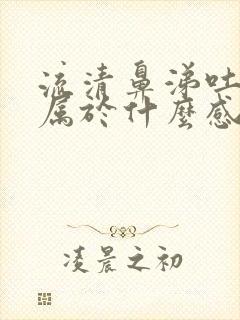 流清鼻涕吐
属於什麼感
凌晨之初